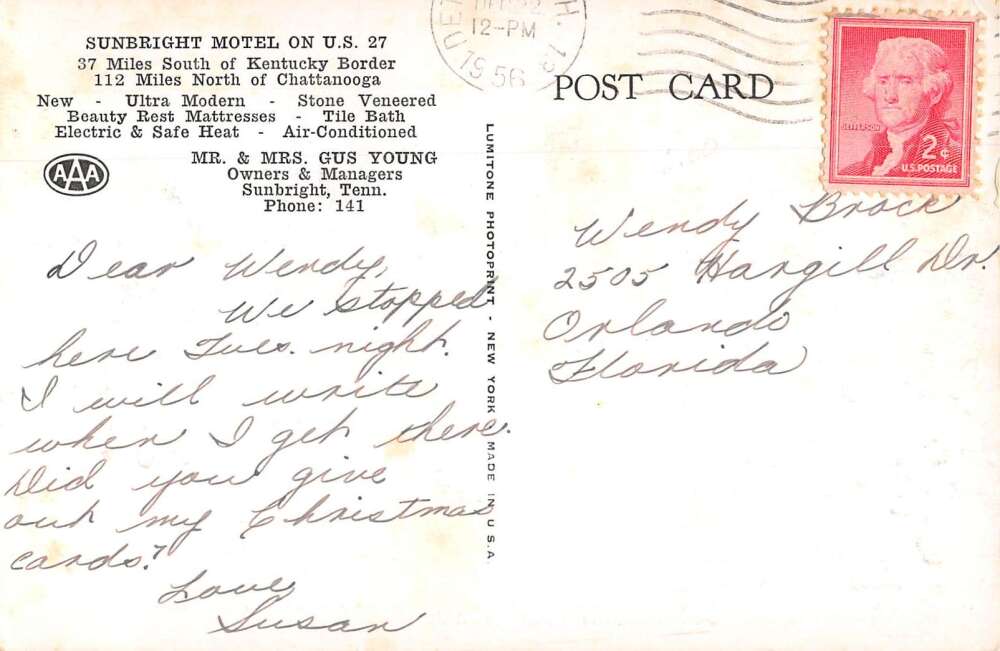 SUNBRIGHT MOTEL ON U.S. 27
37 Miles South of Kentucky Border
112 Miles North of Chattanooga
New - Ultra Modern - Stone Veneered
Beauty Rest Mattresses - Tile Bath
Electric & Safe Heat - Air-Conditioned
AAA
MR. & MRS. GUS YOUNG
Owners & Managers
Sunbright, Tenn.
Phone: 141
Dear Wendy,
We stopped
here Tues. night.
I will write
when I get there.
Did you give
out my Christmas
cards?
Love
Susan
LUMITONE PHOTOPRINT - NEW YORK MADE IN U.S.A.
12-PM
1956
POST CARD
JEFFERSON
2¢
U.S. POSTAGE
Wendy Brock
2505 Hargill Dr.
Orlando
Florida